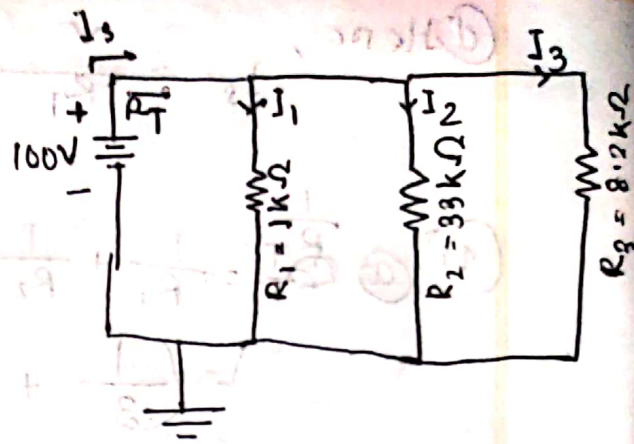 Is
+
RT
100V
-
I1
R1 = 1kΩ
I2
R2 = 33kΩ
I3
R3 = 8.2kΩ